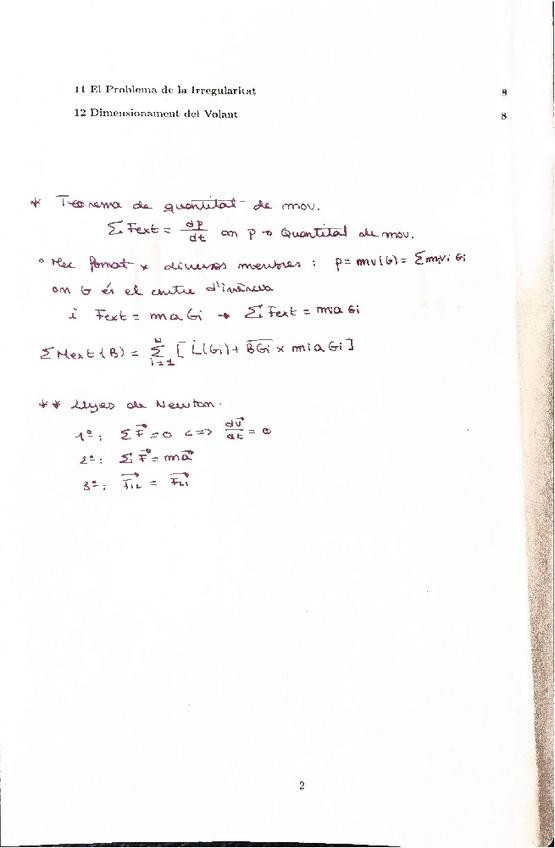 11 El Problema de la Irregularitat 8
12 Dimensionament del Volant 8
* Teorema de quantitat de mov.
ΣFext = dp/dt on p → Quantitat de mov.
° Mec format x diversos membres : p = mv(G) = Σ mi vi Gi
on G és el centre d'inèrcia
i Fext = m a Gi → ΣFext = mi a Gi
ΣMext (B) = Σ_{i=1}^{N} [ L̇(Gi) + BGi x mi a Gi ]
** Lleyes de Newton.
1º: ΣF⃗ = 0 <=> dv⃗/dt = 0
2º: ΣF⃗ = ma⃗
3º: F⃗12 = F⃗21
2